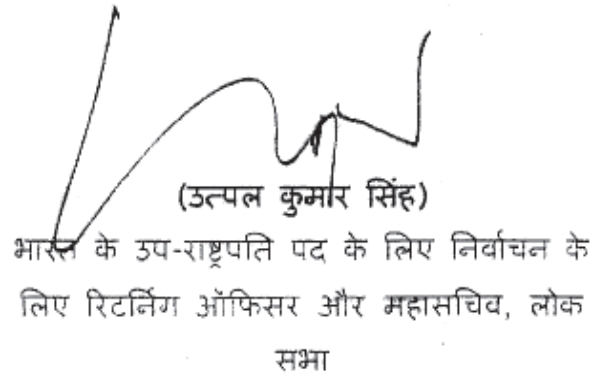 (उत्पल कुमार सिंह)
भारत के उप-राष्ट्रपति पद के लिए निर्वाचन के
लिए रिटर्निंग ऑफिसर और महासचिव, लोक
सभा